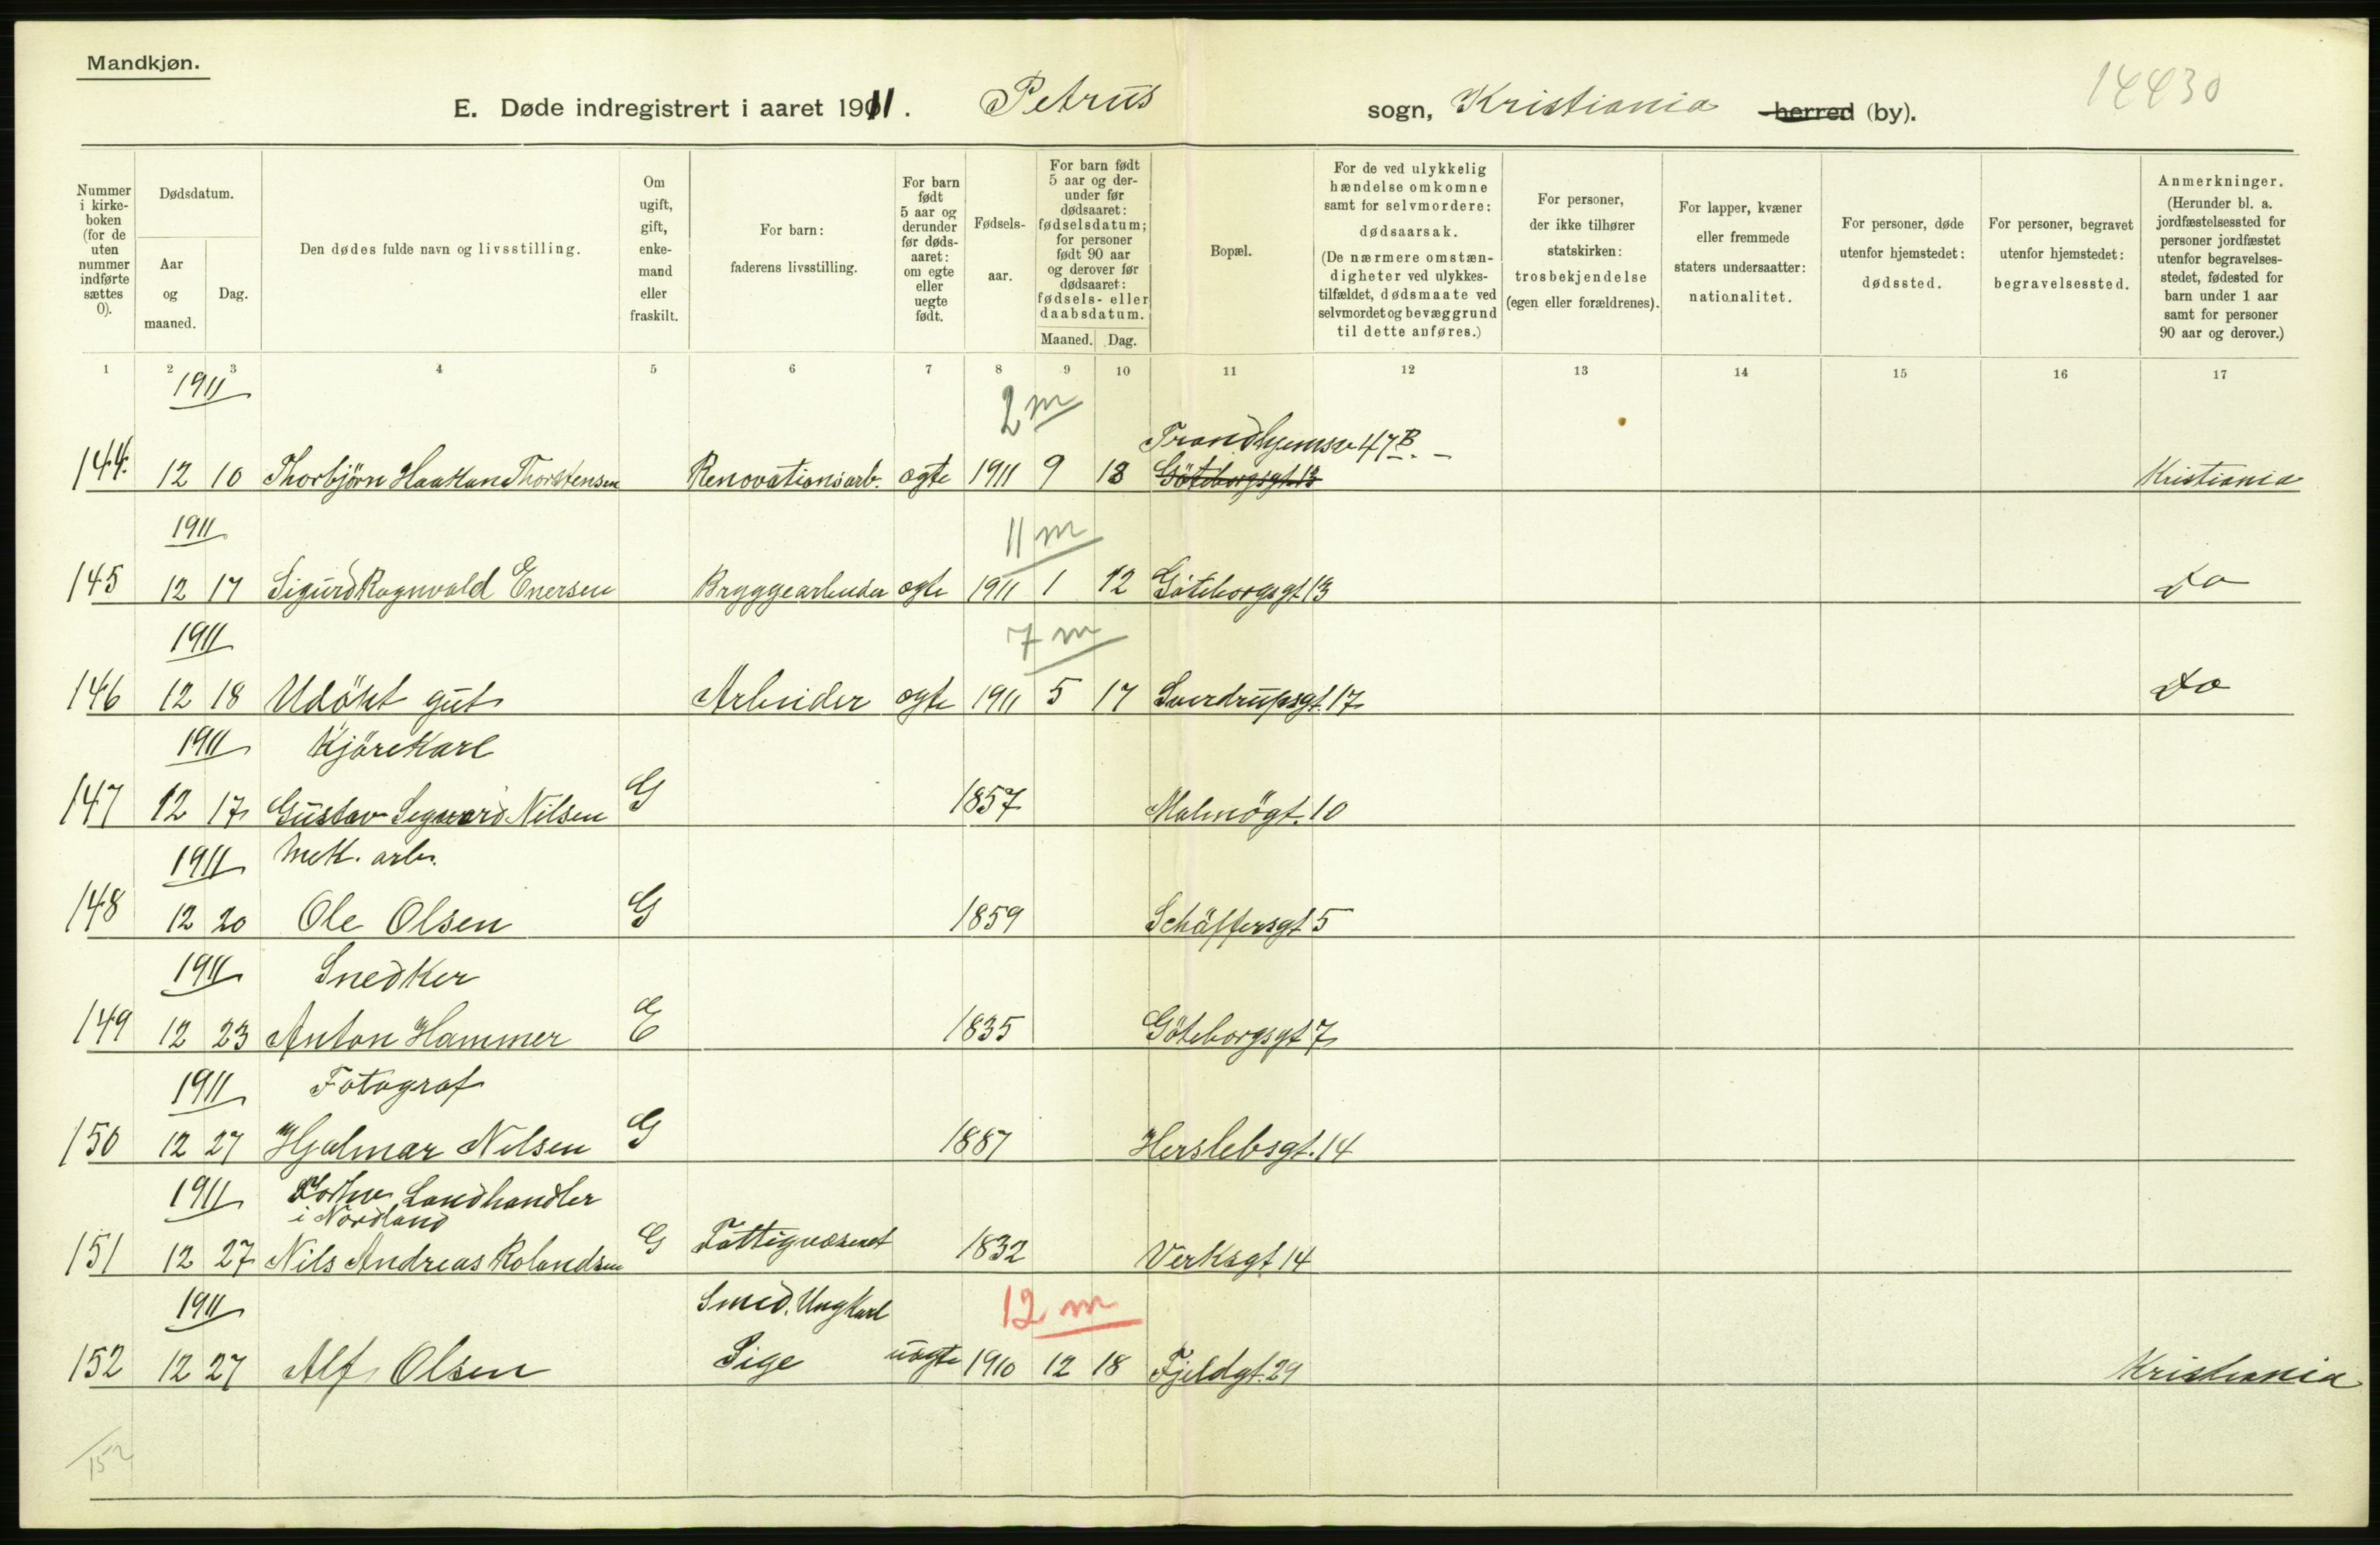 Mandkjøn.
14430
E. Døde indregistrert i aaret 1911. Petrus sogn, Kristiania herred (by).
Nummer i kirke- boken (for de uten nummer indførte sættes 0).
Dødsdatum.
Aar og maaned.
Dag.
Den dødes fulde navn og livsstilling.
Om ugift, gift, enke- mand eller fraskilt.
For barn: faderens livsstilling.
For barn født 5 aar og derunder før døds- aaret: om egte eller uegte født.
Fødsels- aar.
For barn født 5 aar og der- under før dødsaaret: fødselsdatum; for personer født 90 aar og derover før dødsaaret: fødsels- eller daabsdatum.
Maaned. Dag.
Bopæl.
For de ved ulykkelig hændelse omkomne samt for selvmordere: dødsaarsak. (De nærmere omstæn- digheter ved ulykkes- tilfældet, dødsmaate ved selvmordet og bevæggrund til dette anføres.)
For personer, der ikke tilhører statskirken: trosbekjendelse (egen eller forældrenes).
For lapper, kvæner eller fremmede staters undersaatter: nationalitet.
For personer, døde utenfor hjemstedet: dødssted.
For personer, begravet utenfor hjemstedet: begravelsessted.
Anmerkninger. (Herunder bl. a. jordfæstelsessted for personer jordfæstet utenfor begravelses- stedet, fødested for barn under 1 aar samt for personer 90 aar og derover.)
1 2 3 4 5 6 7 8 9 10 11 12 13 14 15 16 17
1911 2 m
Trondhjemsv 47 B. -
144. 12 10 Thorbjörn Haakon Thorstensen Renovationsarb. egte 1911 9 18 Göteborgsgt 13 Kristiania
1911 11 m
145 12 17 Sigurd Ragnvald Enersen Bryggearbeider egte 1911 1 12 Göteborgsgt 13 do
1911 7 m
146 12 18 Udöpt gut Arbeider egte 1911 5 17 Sverdrupsgt. 17 do
1911 Kjörekarl
147 12 17 Gustav Sigvard Nilsen G 1857 Malmögt. 10
1911 Mek. arb.
148 12 20 Ole Olsen G 1859 Schäffersgt 5
1911 Snedker
149 12 23 Anton Hammer E 1835 Göteborgsgt 7
1911 Fotograf
150 12 27 Hjalmar Nilsen G 1887 Herslebsgt. 14
1911 Forhv. Landhandler
i Nordland
151 12 27 Nils Andreas Rolandsen G Fattigvæsenet 1832 Verksgt 14
1911 Smed. Ungkarl 12 m
152 12 27 Alf Olsen Sige uegte 1910 12 18 Fjeldgt. 29 Kristiania
152